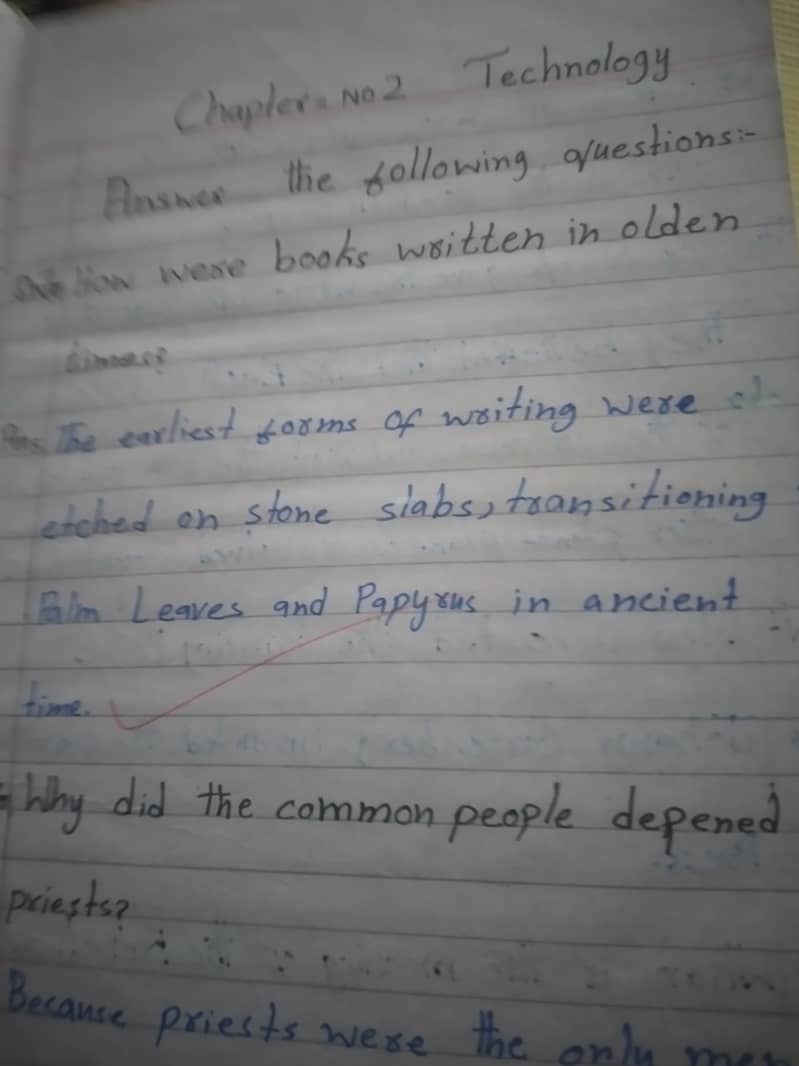 Chapter= No 2 Technology
Answer the following questions:-
How were books written in olden
times?
Ans The earliest forms of writing were
etched on stone slabs, transitioning
Palm Leaves and Papyrus in ancient
time.
Why did the common people depened
priests?
Because priests were the only